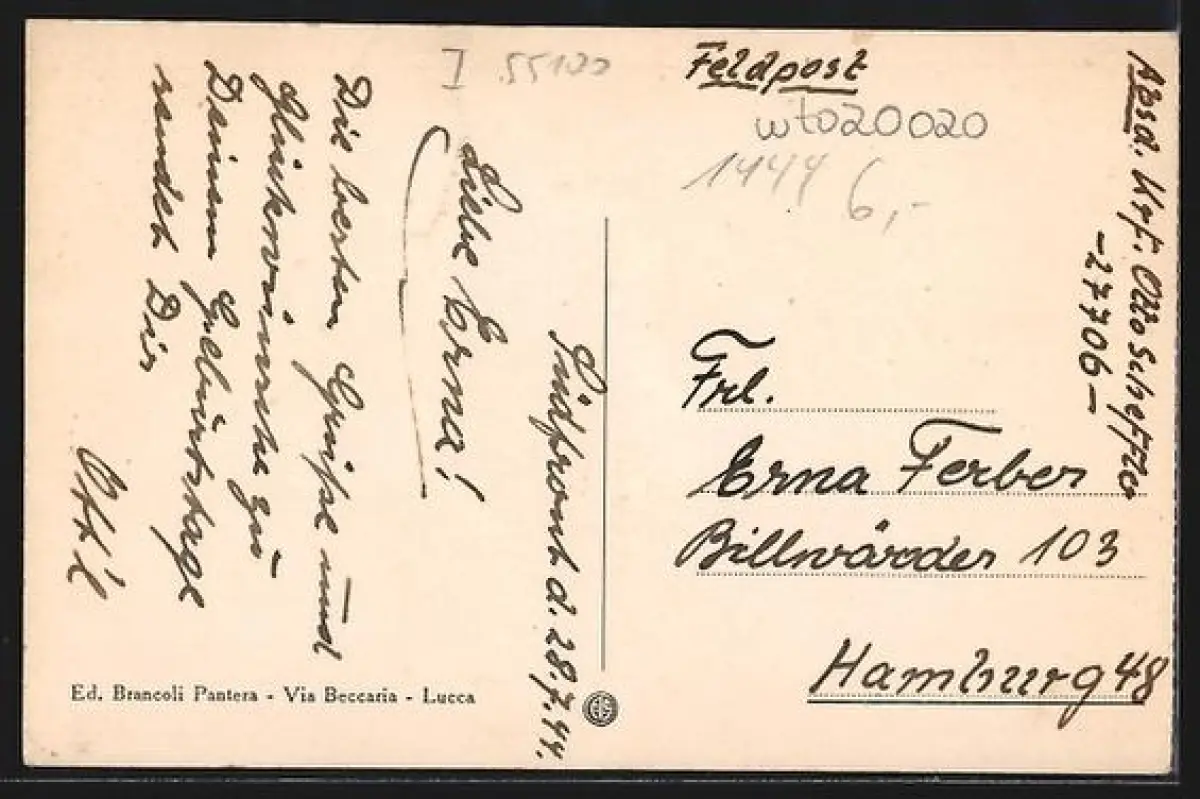 I 55100
Feldpost
wt020020
1444 6,-
Absd. Krf. Otto Scheffler
-27706-
Südfront d. 28.7.44.
Liebe Erna!
Die besten Grüße und
Glückwünsche zu
Deinem Geburtstage
sendet Dir
Otto
Frl.
Erna Ferber
Billwärder 103
Hamburg 48
Ed. Brancoli Pantera - Via Beccaria - Lucca